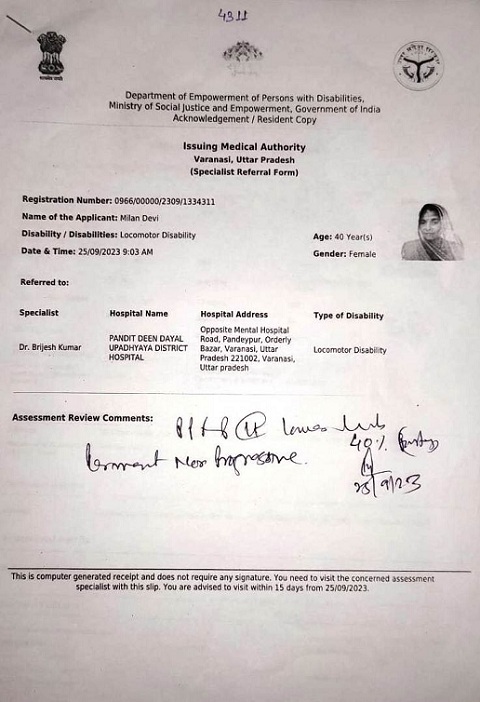 4311
Department of Empowerment of Persons with Disabilities,
Ministry of Social Justice and Empowerment, Government of India
Acknowledgement / Resident Copy
Issuing Medical Authority
Varanasi, Uttar Pradesh
(Specialist Referral Form)
Registration Number: 0966/00000/2309/1334311
Name of the Applicant: Milan Devi
Disability / Disabilities: Locomotor Disability
Age: 40 Year(s)
Date & Time: 25/09/2023 9:03 AM
Gender: Female
Referred to:
Specialist Hospital Name Hospital Address Type of Disability
Dr. Brijesh Kumar
PANDIT DEEN DAYAL
UPADHYAYA DISTRICT
HOSPITAL
Opposite Mental Hospital
Road, Pandeypur, Orderly
Bazar, Varanasi, Uttar
Pradesh 221002, Varanasi,
Uttar pradesh
Locomotor Disability
Assessment Review Comments:
lower limb
40%
Permanent Non Progressive.
/9/23
This is computer generated receipt and does not require any signature. You need to visit the concerned assessment
specialist with this slip. You are advised to visit within 15 days from 25/09/2023.